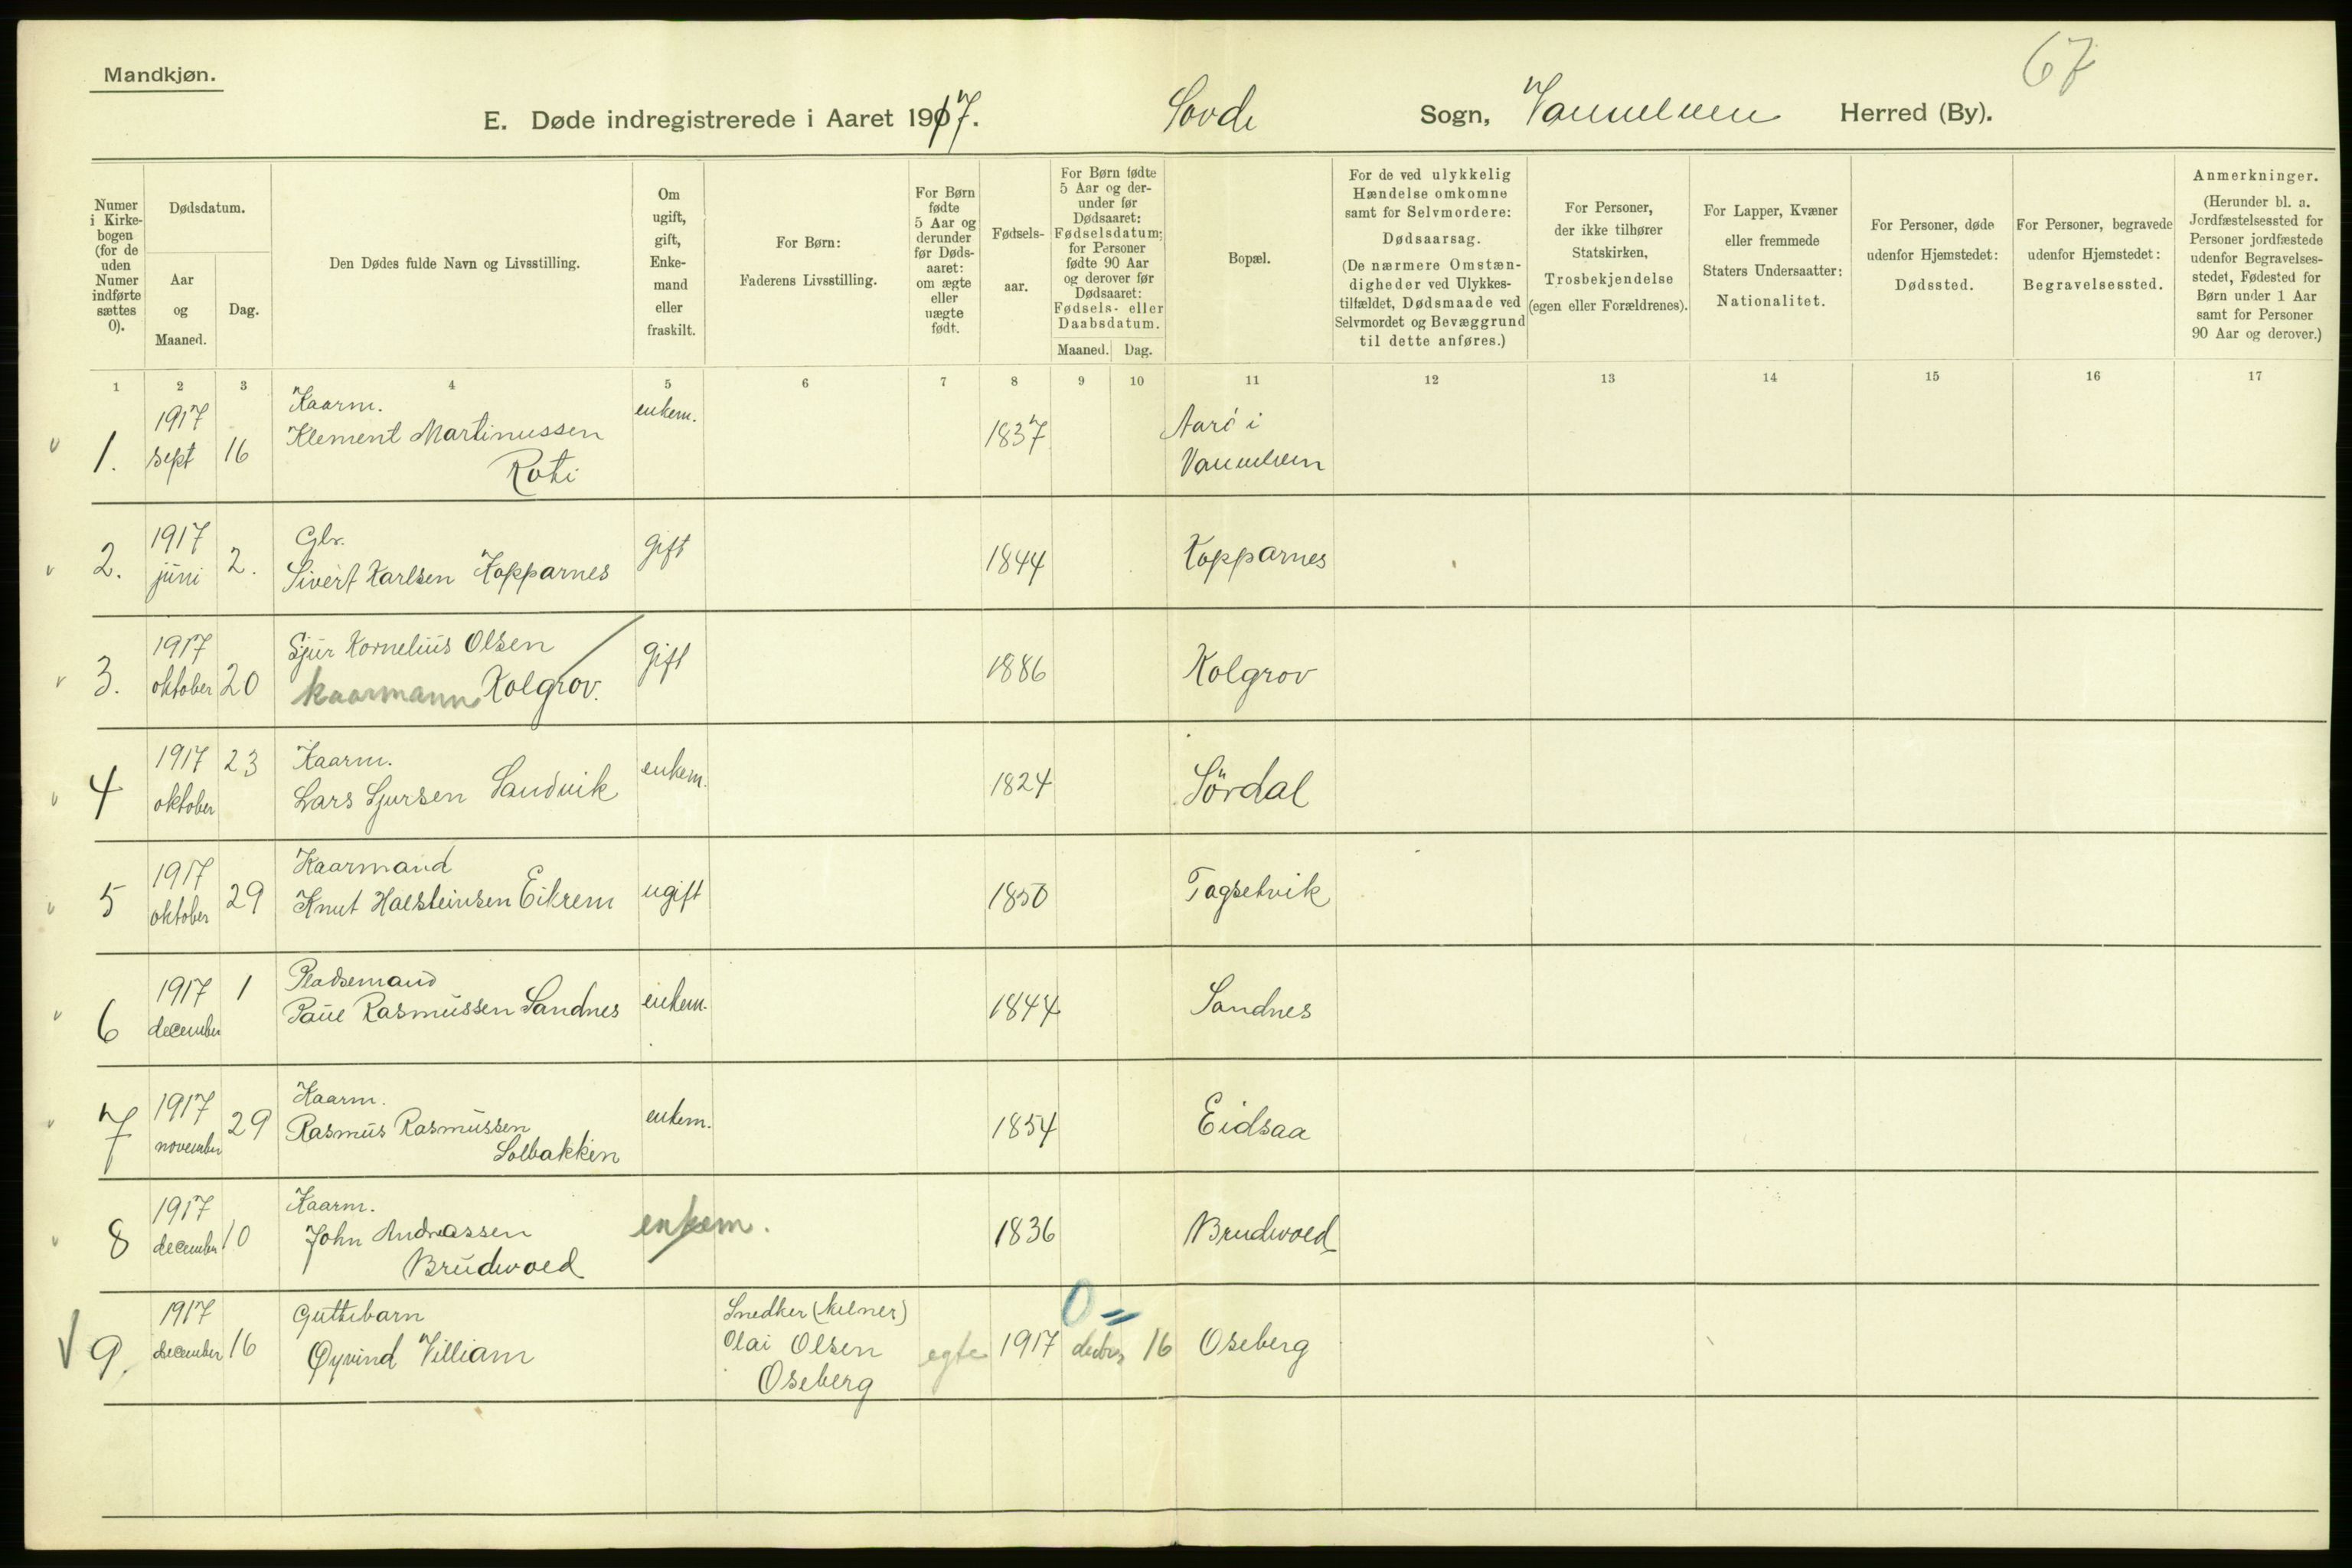 67
Mandkjøn.
E. Døde indregistrerede i Aaret 1917. Sovde Sogn, Vannelven Herred (By).
Numer i Kirkebogen (for de uden Numer indførte sættes 0).
Dødsdatum.
Aar og Maaned.
Dag.
Den Dødes fulde Navn og Livsstilling.
Om ugift, gift, Enkemand eller fraskilt.
For Børn: Faderens Livsstilling.
For Børn fødte 5 Aar og derunder før Dødsaaret: om ægte eller uægte født.
Fødselsaar.
For Børn fødte 5 Aar og derunder før Dødsaaret: Fødselsdatum; for Personer fødte 90 Aar og derover før Dødsaaret: Fødsels- eller Daabsdatum.
Maaned. Dag.
Bopæl.
For de ved ulykkelig Hændelse omkomne samt for Selvmordere: Dødsaarsag. (De nærmere Omstændigheder ved Ulykkestilfældet, Dødsmaade ved Selvmordet og Bevæggrund til dette anføres.)
For Personer, der ikke tilhører Statskirken, Trosbekjendelse (egen eller Forældrenes).
For Lapper, Kvæner eller fremmede Staters Undersaatter: Nationalitet.
For Personer, døde udenfor Hjemstedet: Dødssted.
For Personer, begravede udenfor Hjemstedet: Begravelsessted.
Anmerkninger. (Herunder bl. a. Jordfæstelsessted for Personer jordfæstede udenfor Begravelsesstedet, Fødested for Børn under 1 Aar samt for Personer 90 Aar og derover.)
1 2 3 4 5 6 7 8 9 10 11 12 13 14 15 16 17
1917 Kaarm. enkem. Aarö i
1. sept 16 Klement Martinussen 1837 Vannelven
Roti
1917 Gbr. gift
2. juni 2. Sivert Karlsen Kopparnes 1844 Kopparnes
1917 Sjur Kornelius Olsen gift
3. oktober 20 kaarmann Kolgrov. 1886 Kolgrov
1917 23 Kaarm. enkem.
4 oktober Lars Sjursen Sandvik 1824 Sördal
1917 Kaarmand
5 oktober 29 Knut Halsteinsen Eikrem ugift 1850 Tagsetvik
1917 1 Pladsemand
6 december Paul Rasmussen Sandnes enkem. 1844 Sandnes
1917 Kaarm. enkem.
7 november 29 Rasmus Rasmussen 1854 Eidsaa
Solbakken
1917 Kaarm.
8 december 10 John Andreassen enkem. 1836 Brudevold
Brudevold
1917 Guttebarn Snedker 0=
9. december 16 Øyvind Villiam Olai Olsen egte 1917 decbr 16 Oseberg
Oseberg